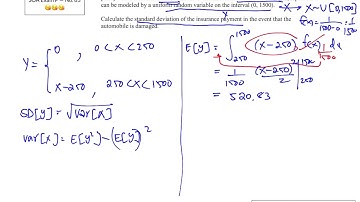 can be modeled by a uniform random variable on the interval (0, 1500).
Calculate the standard deviation of the insurance payment in the event that the
automobile is damaged.
X → X ~ U[0,1500]
f(x) = 1/(1500-0) = 1/1500
Y = { 0 , 0 < X < 250
X-250 , 250 < X < 1500
SD[Y] = √Var[X]
Var[X] = E[Y²] - (E[Y])²
E[Y] = ∫ 250 1500 (X-250) f(x) dx
1/1500
= 1/1500 (X-250)²/2 | 1500 250
= 520.83